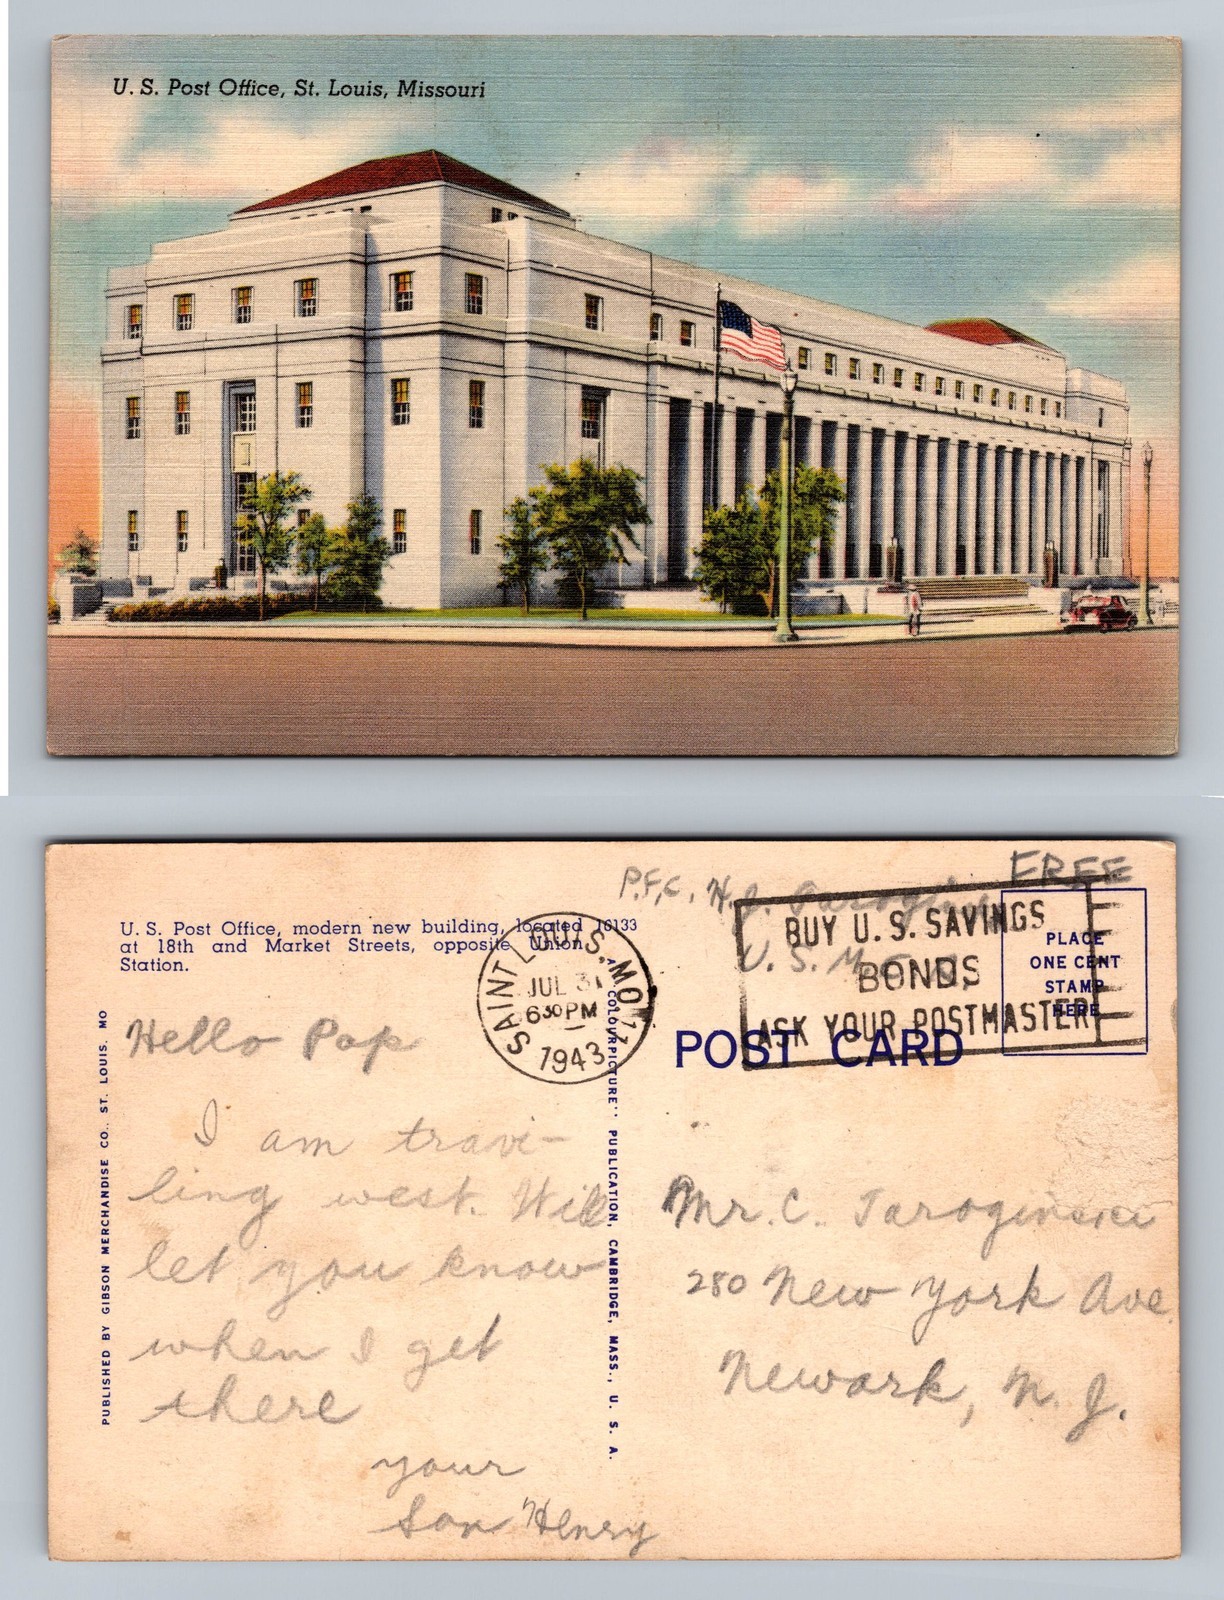 U. S. Post Office, St. Louis, Missouri
FREE
P.F.C. H. J.
U. S. M.
U. S. Post Office, modern new building, located
at 18th and Market Streets, opposite Union
Station.
10133
SAINT LOUIS, MO.
JUL 31
6 30 PM
1943
BUY U. S. SAVINGS
BONDS
ASK YOUR POSTMASTER
PLACE
ONE CENT
STAMP
HERE
POST CARD
PUBLISHED BY GIBSON MERCHANDISE CO., ST. LOUIS, MO
A "COLORPICTURE" PUBLICATION, CAMBRIDGE, MASS., U. S. A.
Hello Pop
I am trave-
ling west. Will
let you know
when I get
there
your
Son Henry
Mr. C.
280 New York Ave.
Newark, N. J.